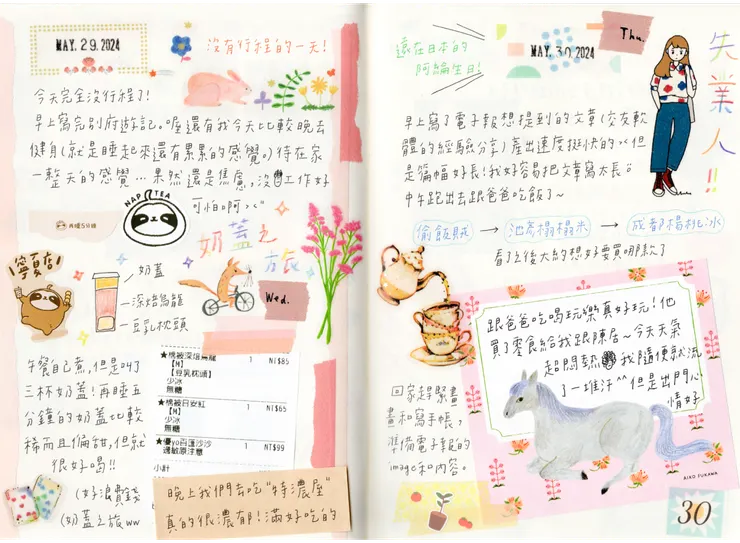 MAY. 29. 2024
沒有行程的一天!
今天完全沒行程了!
早上寫完別府遊記。喔還有我今天比較晚去
健身(就是睡起來還有累累的感覺。)待在家
一整天的感覺…果然還是焦慮,沒工作好
可怕啊><"
NAP TEA
再睡5分鐘
奶蓋之
旅
寧夏店
奶蓋
深焙烏龍
豆乳枕頭
Wed.
午餐自己煮,但是叫了
三杯奶蓋!再睡五
分鐘的奶蓋比較
稀而且偏甜,但就
很好喝!!
(好浪費錢
(奶蓋之旅ww
★棉被深焙烏龍 1 NT$85
【M】
【豆乳枕頭】
少冰
無糖
★棉被日安紅 1 NT$65
【M】
少冰
無糖
★優yo百匯沙沙 1 NT$99
過敏原注意
小計
晚上我們去吃"特濃屋"
真的很濃郁!滿好吃的
還在日本的
阿綸生日!
MAY. 30. 2024
Thu.
失業人!!
早上寫了電子報想提到的文章(交友軟
體的經驗分享)差出速度挺快的××但
是篇幅好長!我好容易把文章寫太長。
中午跑出去跟爸爸吃飯了~
偷飯賊 → 池 榻榻米 → 成都楊桃冰
看了之後大約想好要買哪款了
跟爸爸吃喝玩樂真好玩!他
買了零食給我跟陳居~今天天氣
超悶熱 我隨便就流
了一堆汗^^但是出門心
情好
回家趕緊畫
畫和寫手帳,
準備電子報的
image和內容。
AIKO FUKAWA
30